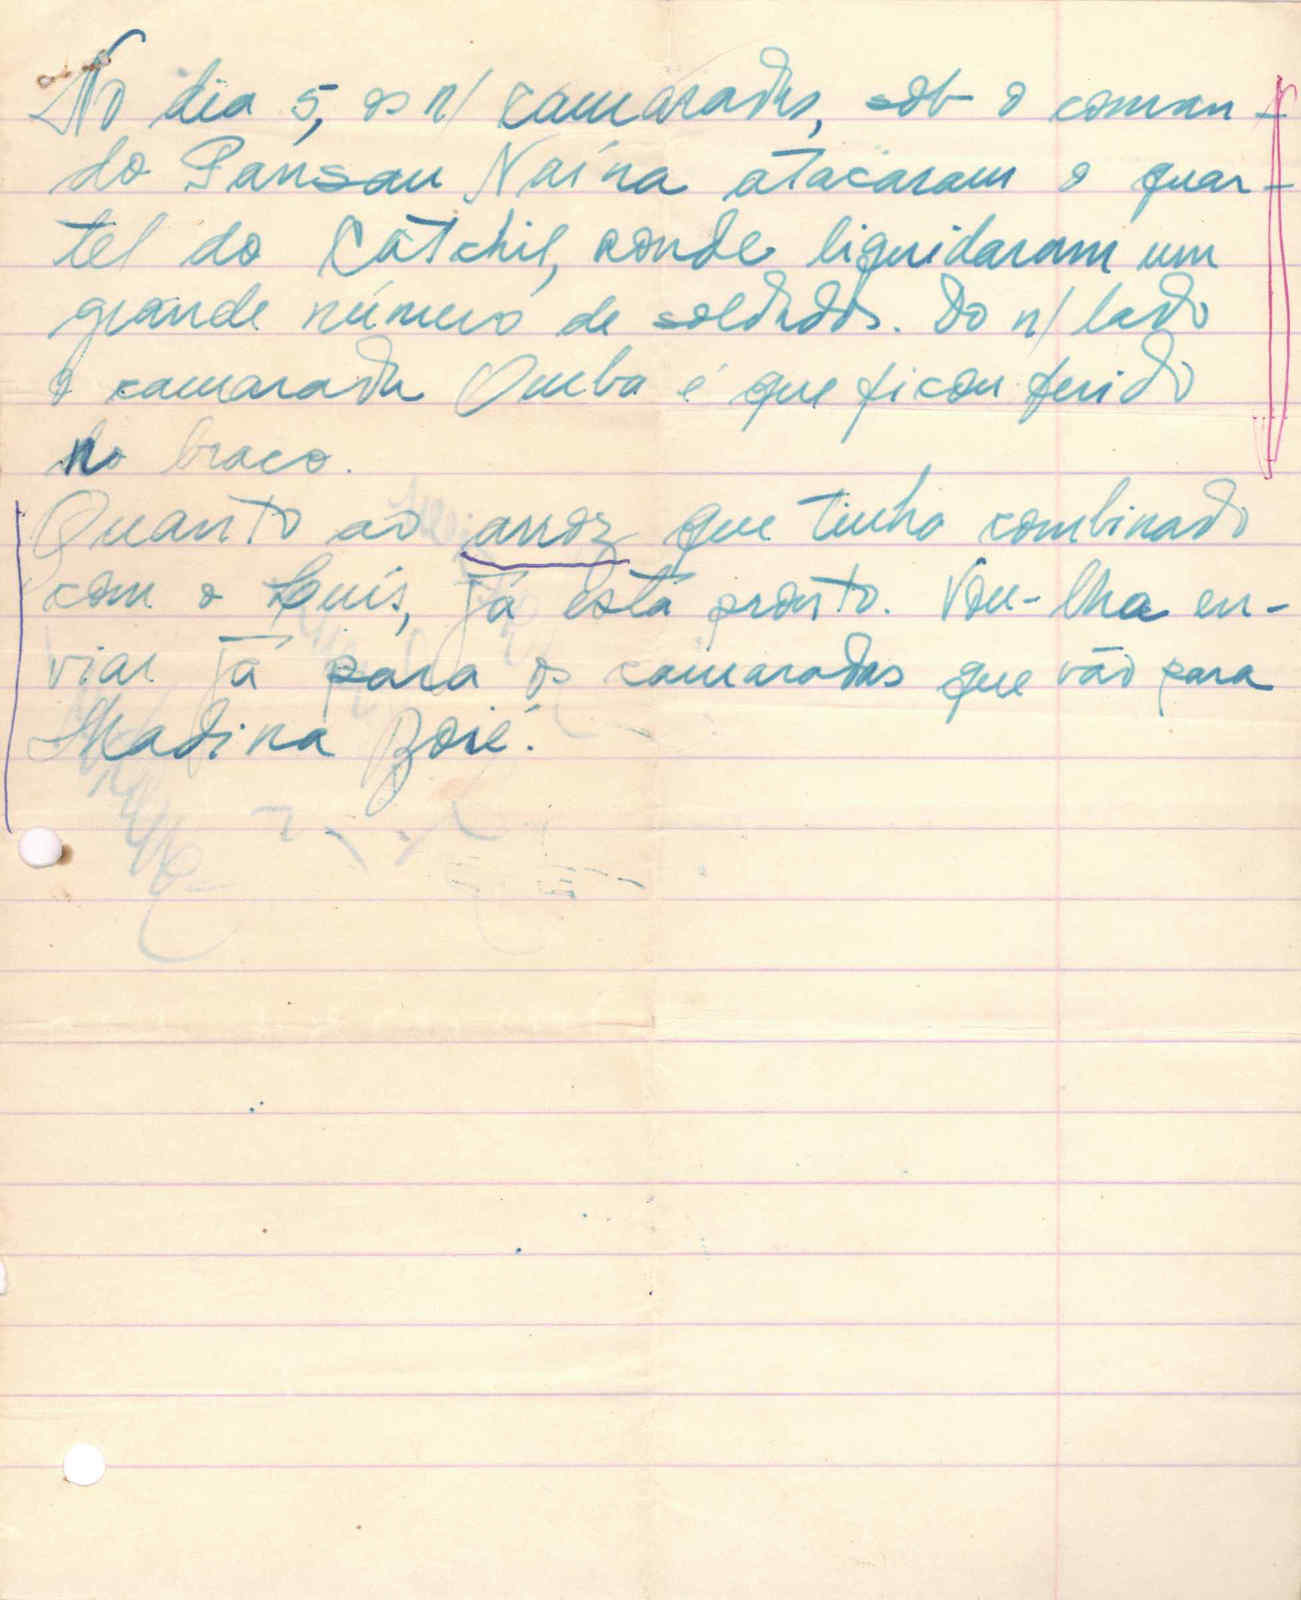 No dia 5, os n/ camaradas, sob o coman-
do Pansau Naína atacaram o quar-
tel do Catchil, aonde liquidaram um
grande número de soldados. Do n/ lado
o camarada Omba é que ficou ferido
no braço.
Quanto ao arroz que tinha combinado
com o Luís, já está pronto. Vou-lha en-
viar já para os camaradas que vão para
Madina Boié.